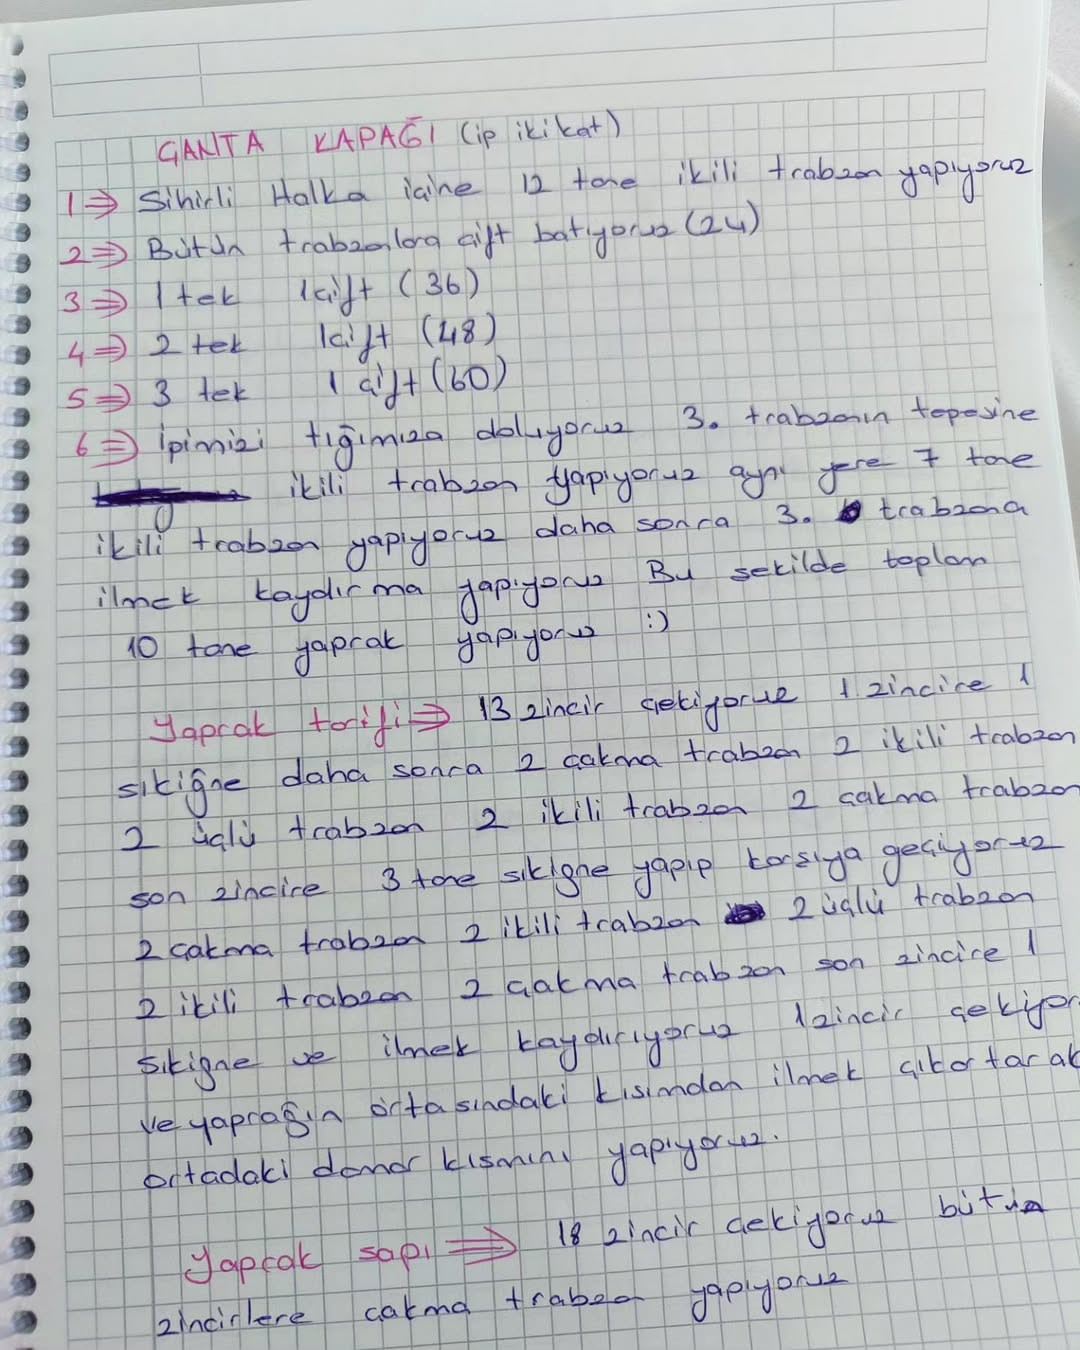 ÇANTA KAPAĞI (ip iki kat)
1⇒ Sihirli Halka içine 12 tane ikili trabzan yapıyoruz
2⇒ Bütün trabzanlara çift batıyoruz (24)
3⇒ 1 tek 1 çift (36)
4⇒ 2 tek 1 çift (48)
5⇒ 3 tek 1 çift (60)
6⇒ ipimizi tığımıza doluyoruz 3. trabzanın tepesine
ikili trabzan yapıyoruz aynı yere 7 tane
ikili trabzan yapıyoruz daha sonra 3. trabzana
ilmek kaydırma yapıyoruz Bu sekilde toplam
10 tane yaprak yapıyoruz :)
Yaprak tarifi⇒ 13 zincir çekiyoruz 1. zincire 1
sıkiğne daha sonra 2 çakma trabzan 2 ikili trabzan
2 üçlü trabzan 2 ikili trabzan 2 çakma trabzan
son zincire 3 tane sıkigne yapıp karsıya geçiyoruz
2 çakma trabzan 2 ikili trabzan 2 üçlü trabzan
2 ikili trabzan 2 çakma trabzan son zincire 1
sıkigne ve ilmek kaydırıyoruz 1 zincir çekiyor
ve yaprağın ortasındaki kısımdan ilmek çıkartarak
ortadaki damar kısmını yapıyoruz.
Yaprak sapı ⇒ 18 zincir çekiyoruz bütün
zincirlere çakma trabzan yapıyoruz